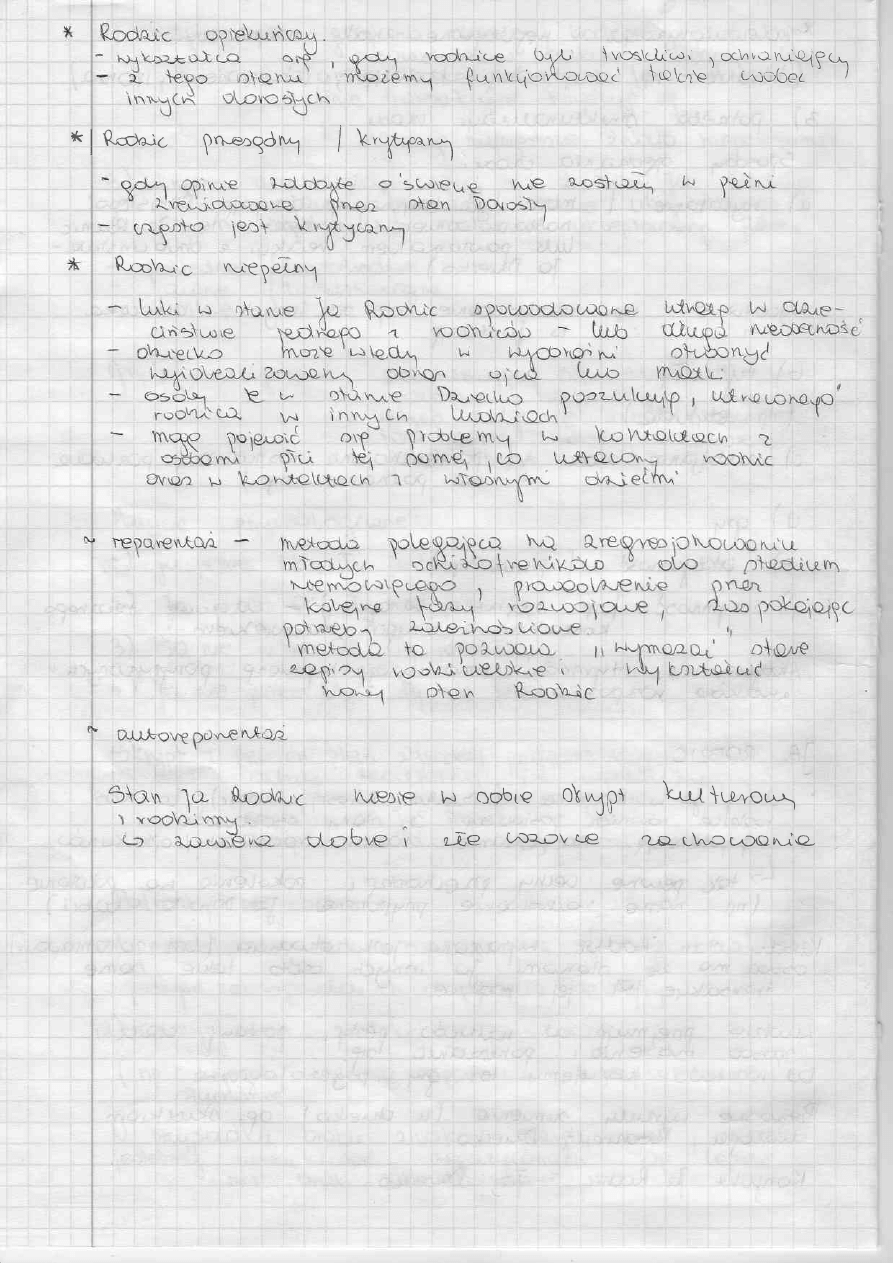 * Rodzic opiekuńczy.
- wykształca się, gdy rodzice byli troskliwi, ochraniający
- z tego stanu możemy funkcjonować także wobec
innych dorosłych
* Rodzic przesądny / krytyczny
- gdy opinie zdobyte o świecie nie zostały w pełni
zrewidowane przez stan Dorosły
- często jest krytyczny
* Rodzic niepełny
- luki w stanie Ja Rodzic spowodowane utratą w dzie-
ciństwie jednego z rodziców - lub długa nieobecność
- dziecko może wtedy w wyobraźni stworzyć
wyidealizowany obraz ojca lub matki
- osoby te w stanie Dziecko poszukują "utraconego"
rodzica w innych ludziach
- mogą pojawić się problemy w kontaktach z
osobami płci tej samej, co utracony rodzic
oraz w kontaktach z własnymi dziećmi
~ reparentaż - metoda polegająca na zregresjonowaniu
młodych schizofreników do stadium
niemowlęcego, prowadzenie przez
kolejne fazy rozwojowe, zaspokajając
potrzeby zależnościowe
metoda ta pozwala "wymazać" stare
zapisy rodzicielskie i wykształcić
nowy stan Rodzic
~ autoreparentaż
Stan Ja Rodzic niesie w sobie skrypt kulturowy
i rodzinny.
↳ zawiera dobre i złe wzorce zachowania